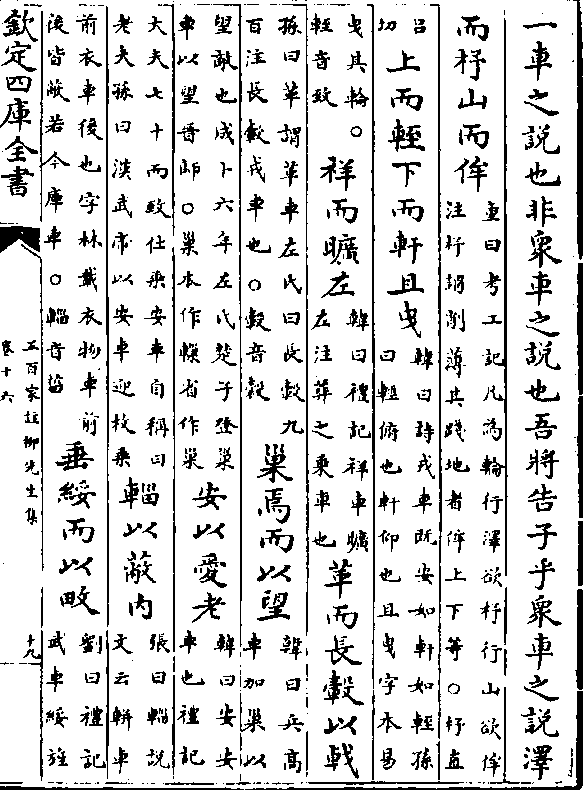 一車之説也非衆車之説也吾將告子乎衆車之説澤
而杼山而侔
童曰考工記凡為輪行澤欲杼行山欲侔
注杼謂削薄其踐地者侔上下等○杼直
吕
切
上而輊下而軒且曳
韓曰詩戎車既安如軒如輊孫
曰輊俯也軒仰也且曳字本易
曳其輪○
輊音致
祥而曠左
韓曰禮記祥車曠
左注葬之乗車也
革而長轂以戟
孫曰革謂革車左氏曰長轂九
百注長轂戎車也○轂音榖
巢焉而以望
韓曰兵高
車加巢以
望敵也成十六年左氏楚子登巢
車以望晉師○巢本作轈省作巢
安以愛老
韓曰安安
車也禮記
大夫七十而致仕乗安車自稱曰
老夫孫曰漢武帝以安車迎枚乗
輜以蔽内
張曰輜説
文云軿車
前衣車後也字林載衣物車前
後皆蔽若今庫車○輜音菑
垂綏而以畋
劉曰禮記
武車綏旌
欽定四庫全書
五百家註柳先生集
卷十六
十九